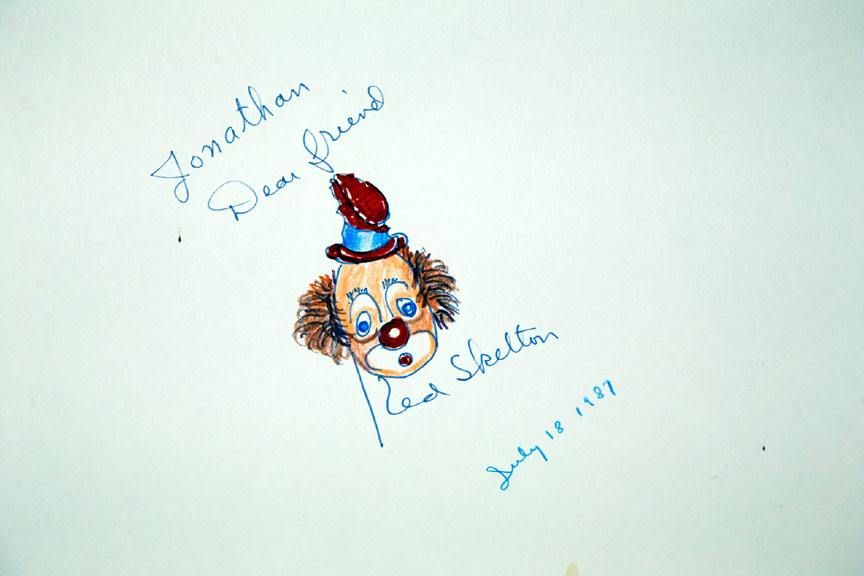 Jonathan
Dear friend
Red Skelton
July 18 1987